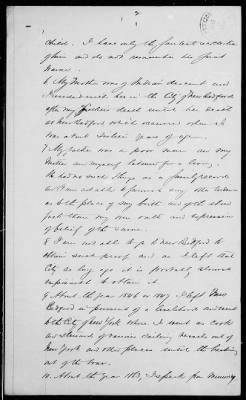 child. I have only the faintest recollection
of him and do not remember his first
name.
6. My Mother was of Indian descent and
resided in the City of New Bedford
after my Father's death until her death
at New Bedford which occurred when I
was about twelve years of age.
7. My father was a poor man and my
Mother and myself labored for a living.
He had no such things as a family record
and I am unable to furnish any other evidence
as to the place of my birth and of the above
fact than my own oath and expression
of belief of the same.
8. I am not able to go to New Bedford to
obtain such proof and as I left that
City so long ago it is probably almost
impossible to obtain it.
9. About the year 1846 or 1847 I left New
Bedford in pursuit of a livelihood and went
to the City of New York where I went as cook
and steward of various sailing vessels out of
New York and other places until the breaking
out of the war.
10. About the year 1863, I speak from memory